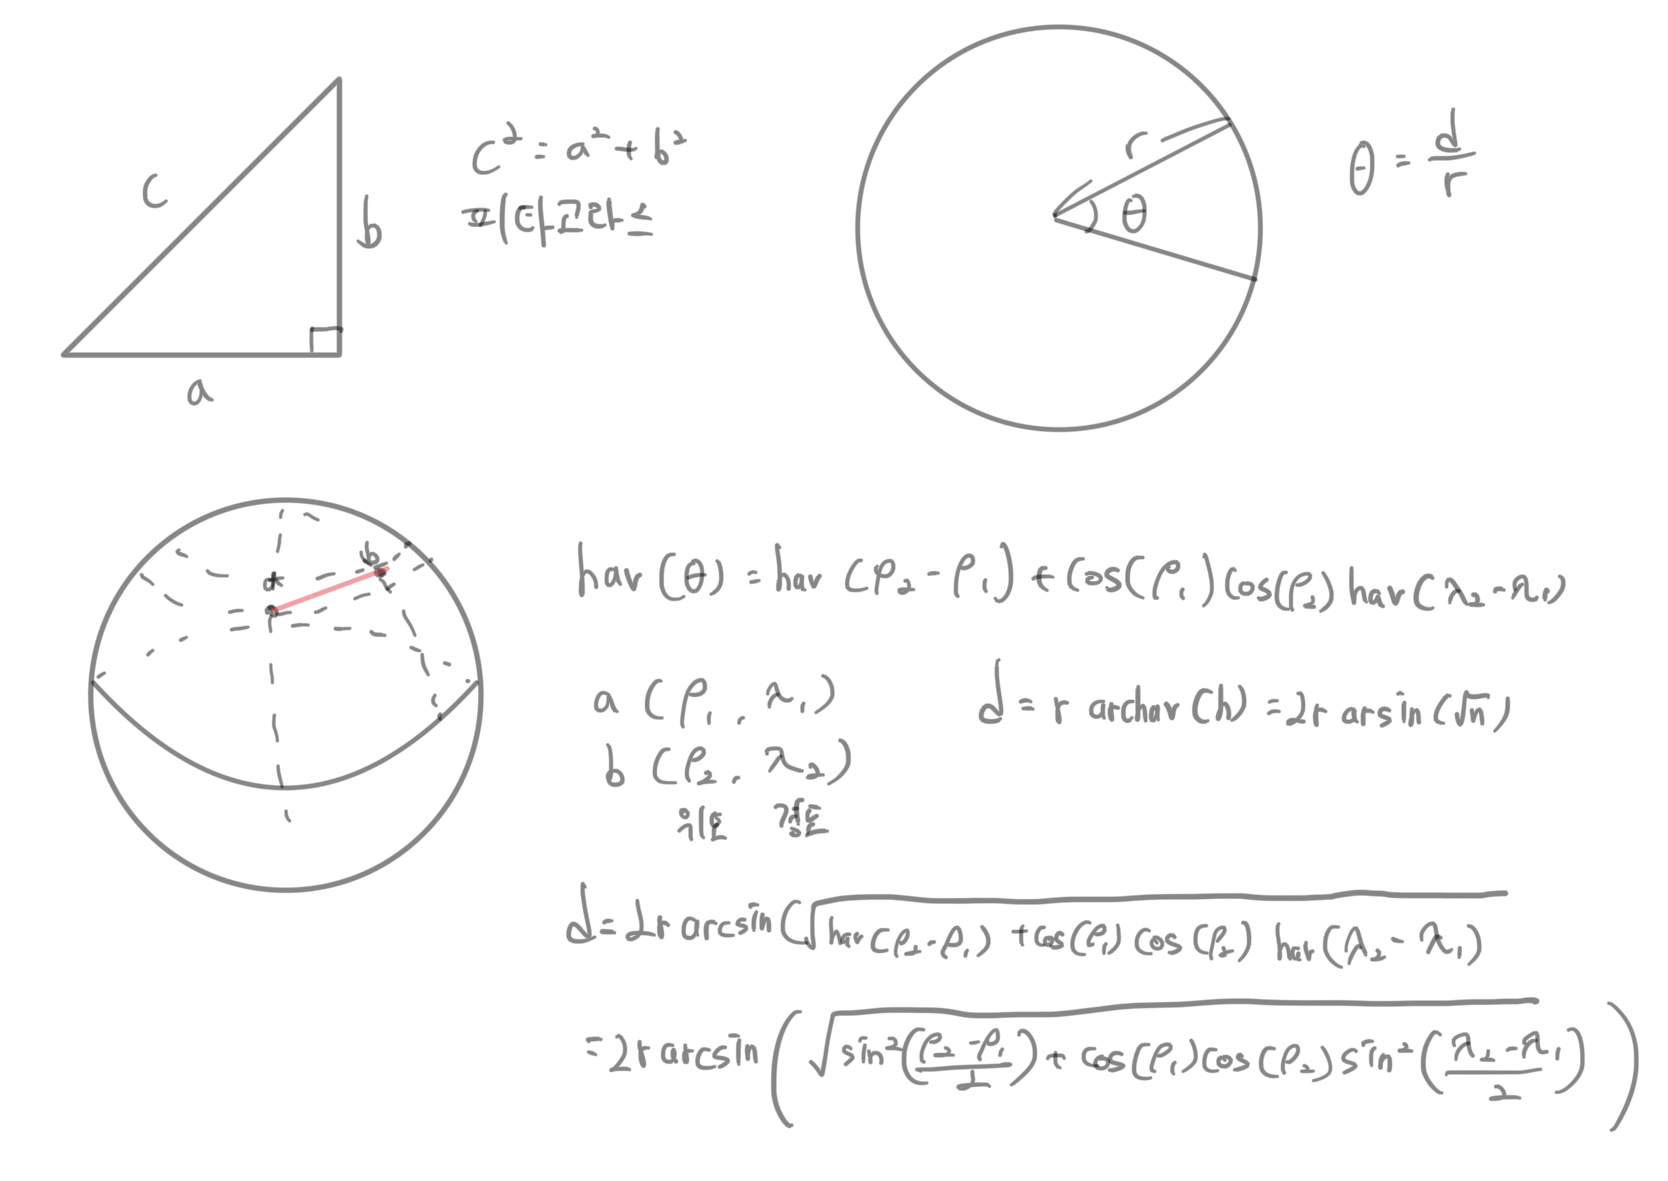 c
b
a
c² = a² + b²
피타고라스
r
θ
θ = d/r
a
b
hav (θ) = hav (ρ₂ - ρ₁) + cos(ρ₁) cos(ρ₂) hav (λ₂ - λ₁)
a (ρ₁, λ₁)
d = r archav (h) = 2r arsin (√n)
b (ρ₂, λ₂)
위도 경도
d = 2r arcsin (√hav (ρ₂ - ρ₁) + cos (ρ₁) cos (ρ₂) hav (λ₂ - λ₁)
= 2r arcsin (√sin² ((ρ₂ - ρ₁)/2) + cos (ρ₁) cos (ρ₂) sin² ((λ₂ - λ₁)/2))